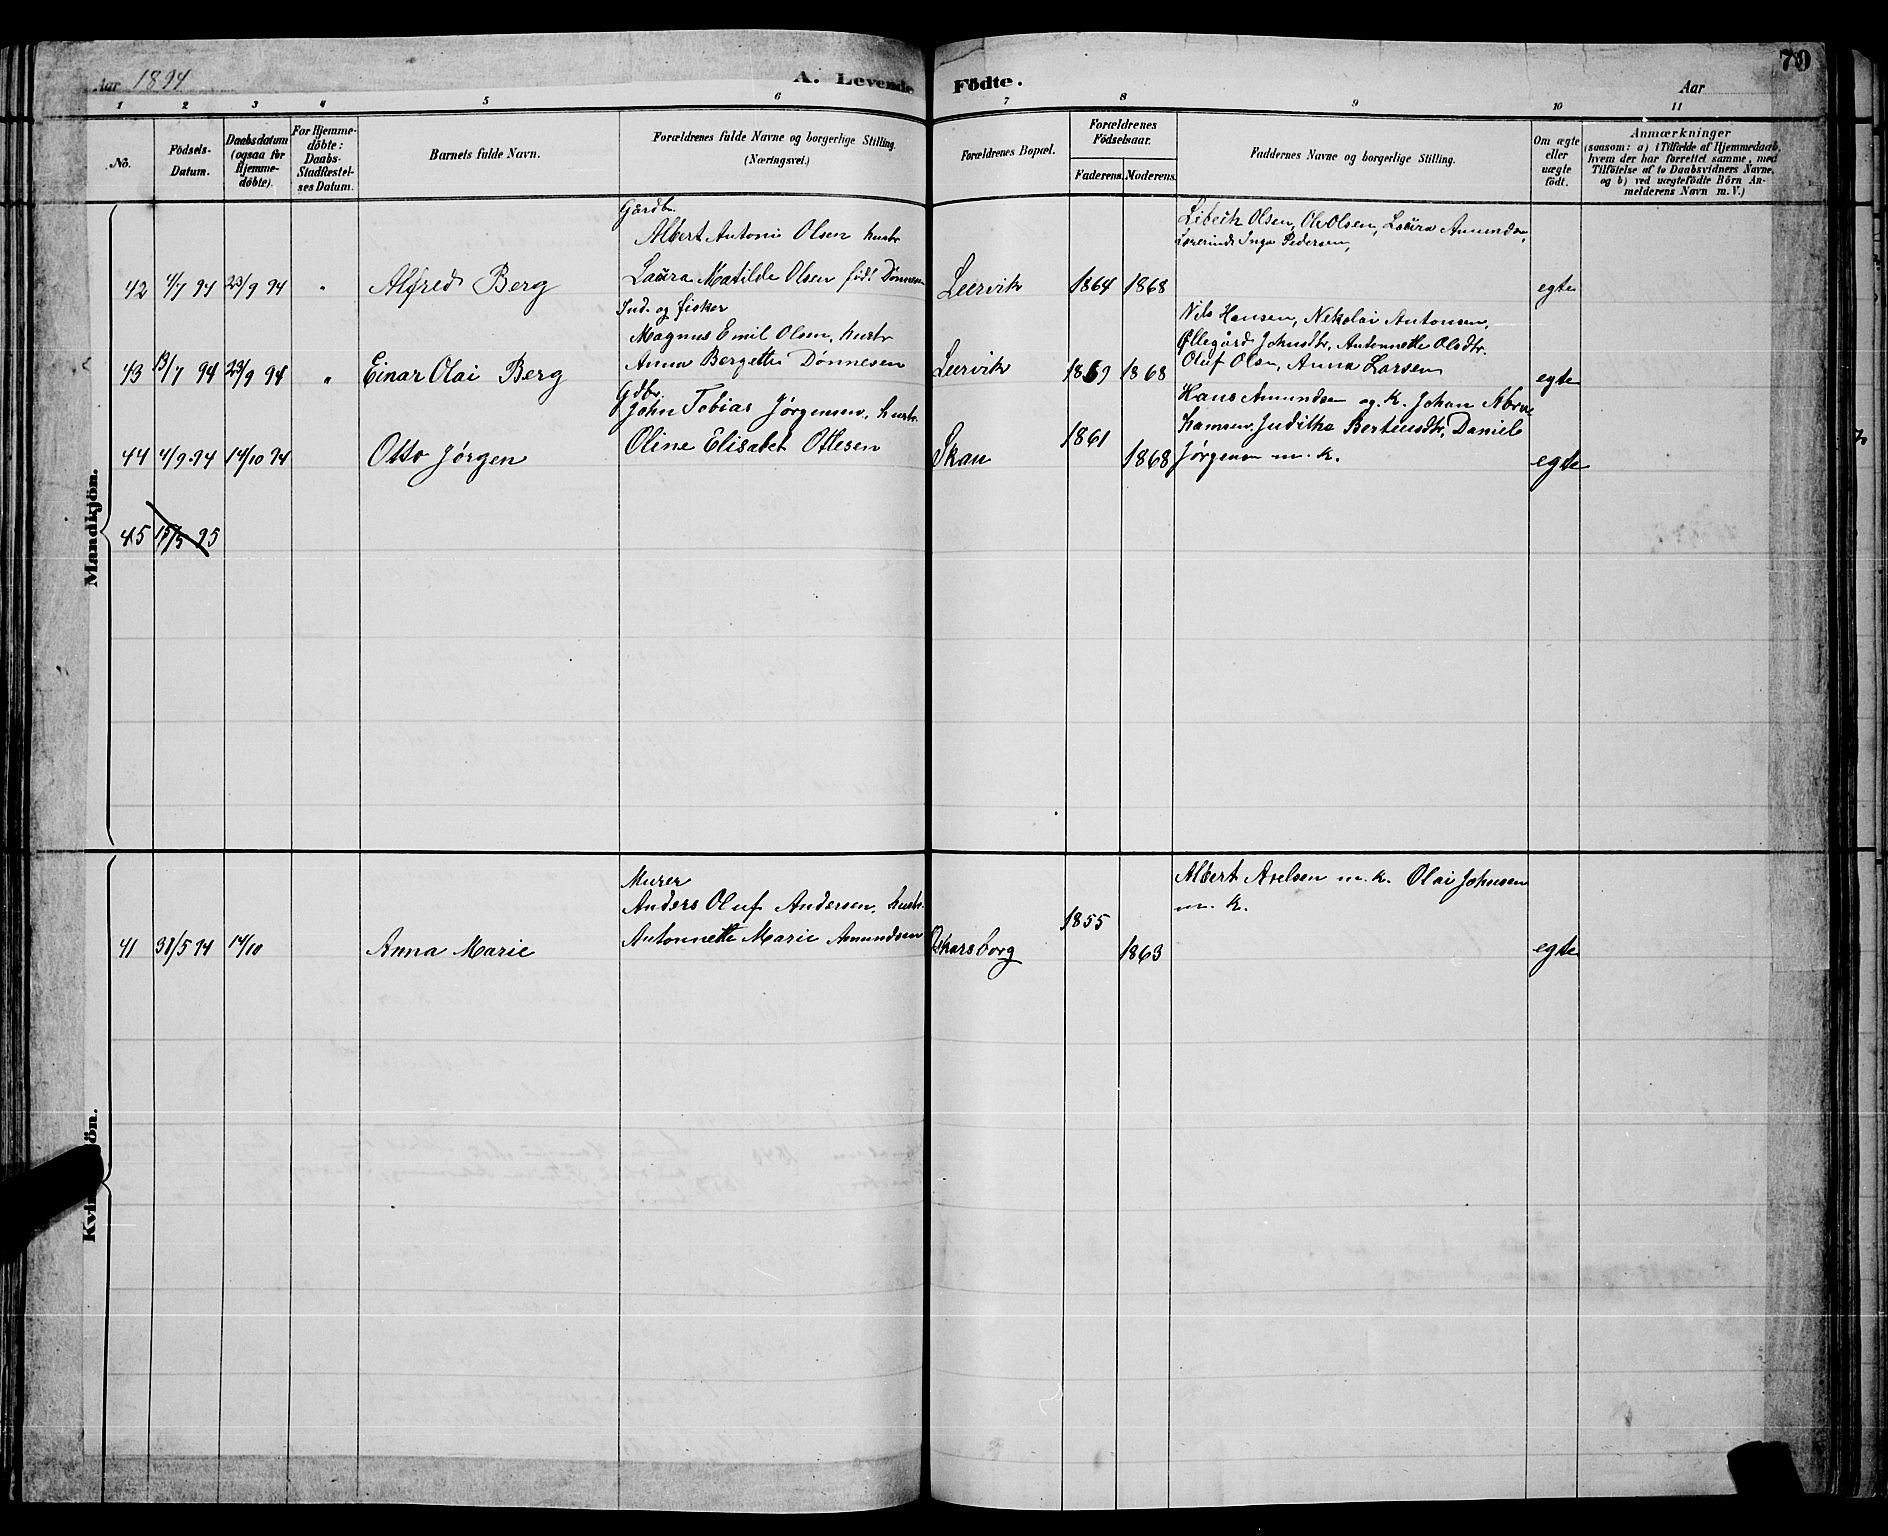 70
Aar 1894
A. Levende Födte.
Aar
1 2 3 4 5 6 7 8 9 10 11
No.
Födsels-
Datum.
Daabsdatum
(ogsaa for
Hjemme-
döbte).
For Hjemme-
döbte:
Daabs-
Stadfæstel-
ses Datum.
Barnets fulde Navn.
Forældrenes fulde Navne og borgerlige Stilling.
(Næringsvei.)
Forældrenes Bopæl.
Forældrenes
Födselsaar.
Faderens. Moderens.
Faddernes Navne og borgerlige Stilling.
Om ægte
eller
uægte
födt.
Anmærkninger
(saasom: a) i Tilfælde af Hjemmedaab,
hvem der har forrettet samme, med
Tilföielse af to Daabsvidners Navne,
og b) ved uægtefödte Börn An-
melderens Navn m. V.)
Mandkjön.
Gårdb.
Albert Antoni Olsen hustr
Laura Matilde Olsen föd! Dønnesen
42 4/7 94 23/9 94 " Alfred Berg
Leervik 1864 1868
Olsen, Ole Olsen, Laura Amundsen,
Lærerinde Inga Pedersen,
egte
Ind. og fisker
Magnus Emil Olsen, hustr
Anna Bergette Dønnesen
43 13/7 94 23/9 94 " Einar Olai Berg
Leervik 1869 1868
Nils Hansen, Nekolai Antonsen,
Øllegård Johnsdtr, Antonnette Olsdtr.
Oluf Olsen, Anna Larsen
egte
Gdbr.
John Tobias Jørgensen, hustr.
Oline Elisabet Ottesen
44 4/9 94 14/10 94 Otto Jørgen
Skau 1861 1868
Hans Amundsen og K. Johan
Hansen. Juditha Bertinusdtr, Daniel
Jørgensen m. K.
egte
45 15/5 95
Kvi jön.
Murer
Anders Oluf Andersen, hustr.
Antonnette Marie Amundsen
41 31/5 94 14/10 Anna Marie
Oskarsborg 1855 1863
Albert Axelsen m. K. Olai Johnsen
m. K.
egte